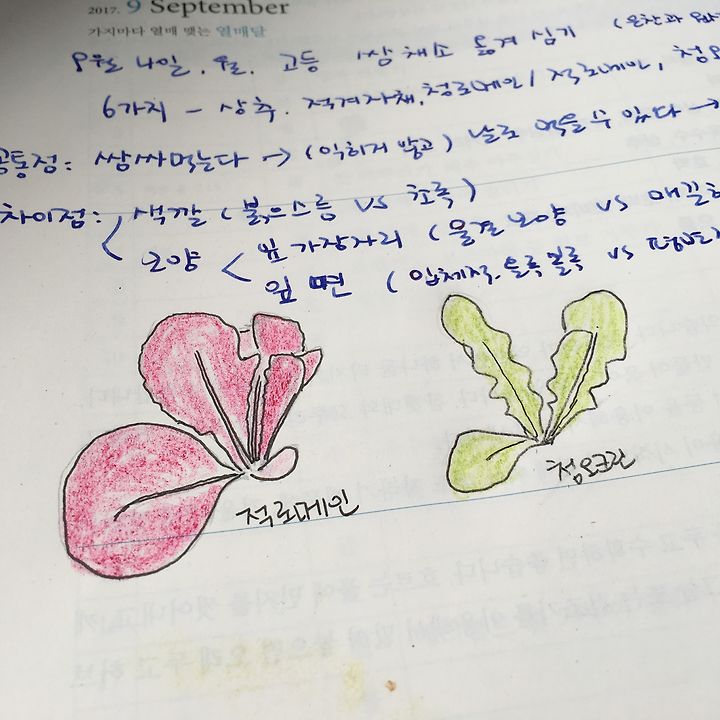 2017. 9 September
가지마다 열매 맺는 열매달
9월 4일, 월. 고등 쌈채소 옮겨 심기
6가지 - 상추. 적겨자채, 청로메인/적로메인, 청오
공통점: 쌈싸먹는다 → (익히지 않고) 날로 먹을 수 있다 →
차이점: 색깔 (붉으스름 VS 초록)
모양 < 잎 가장자리 (물결모양 VS 매끈
잎 면 (입체적. 울룩불룩 VS
적로메인
청오크린